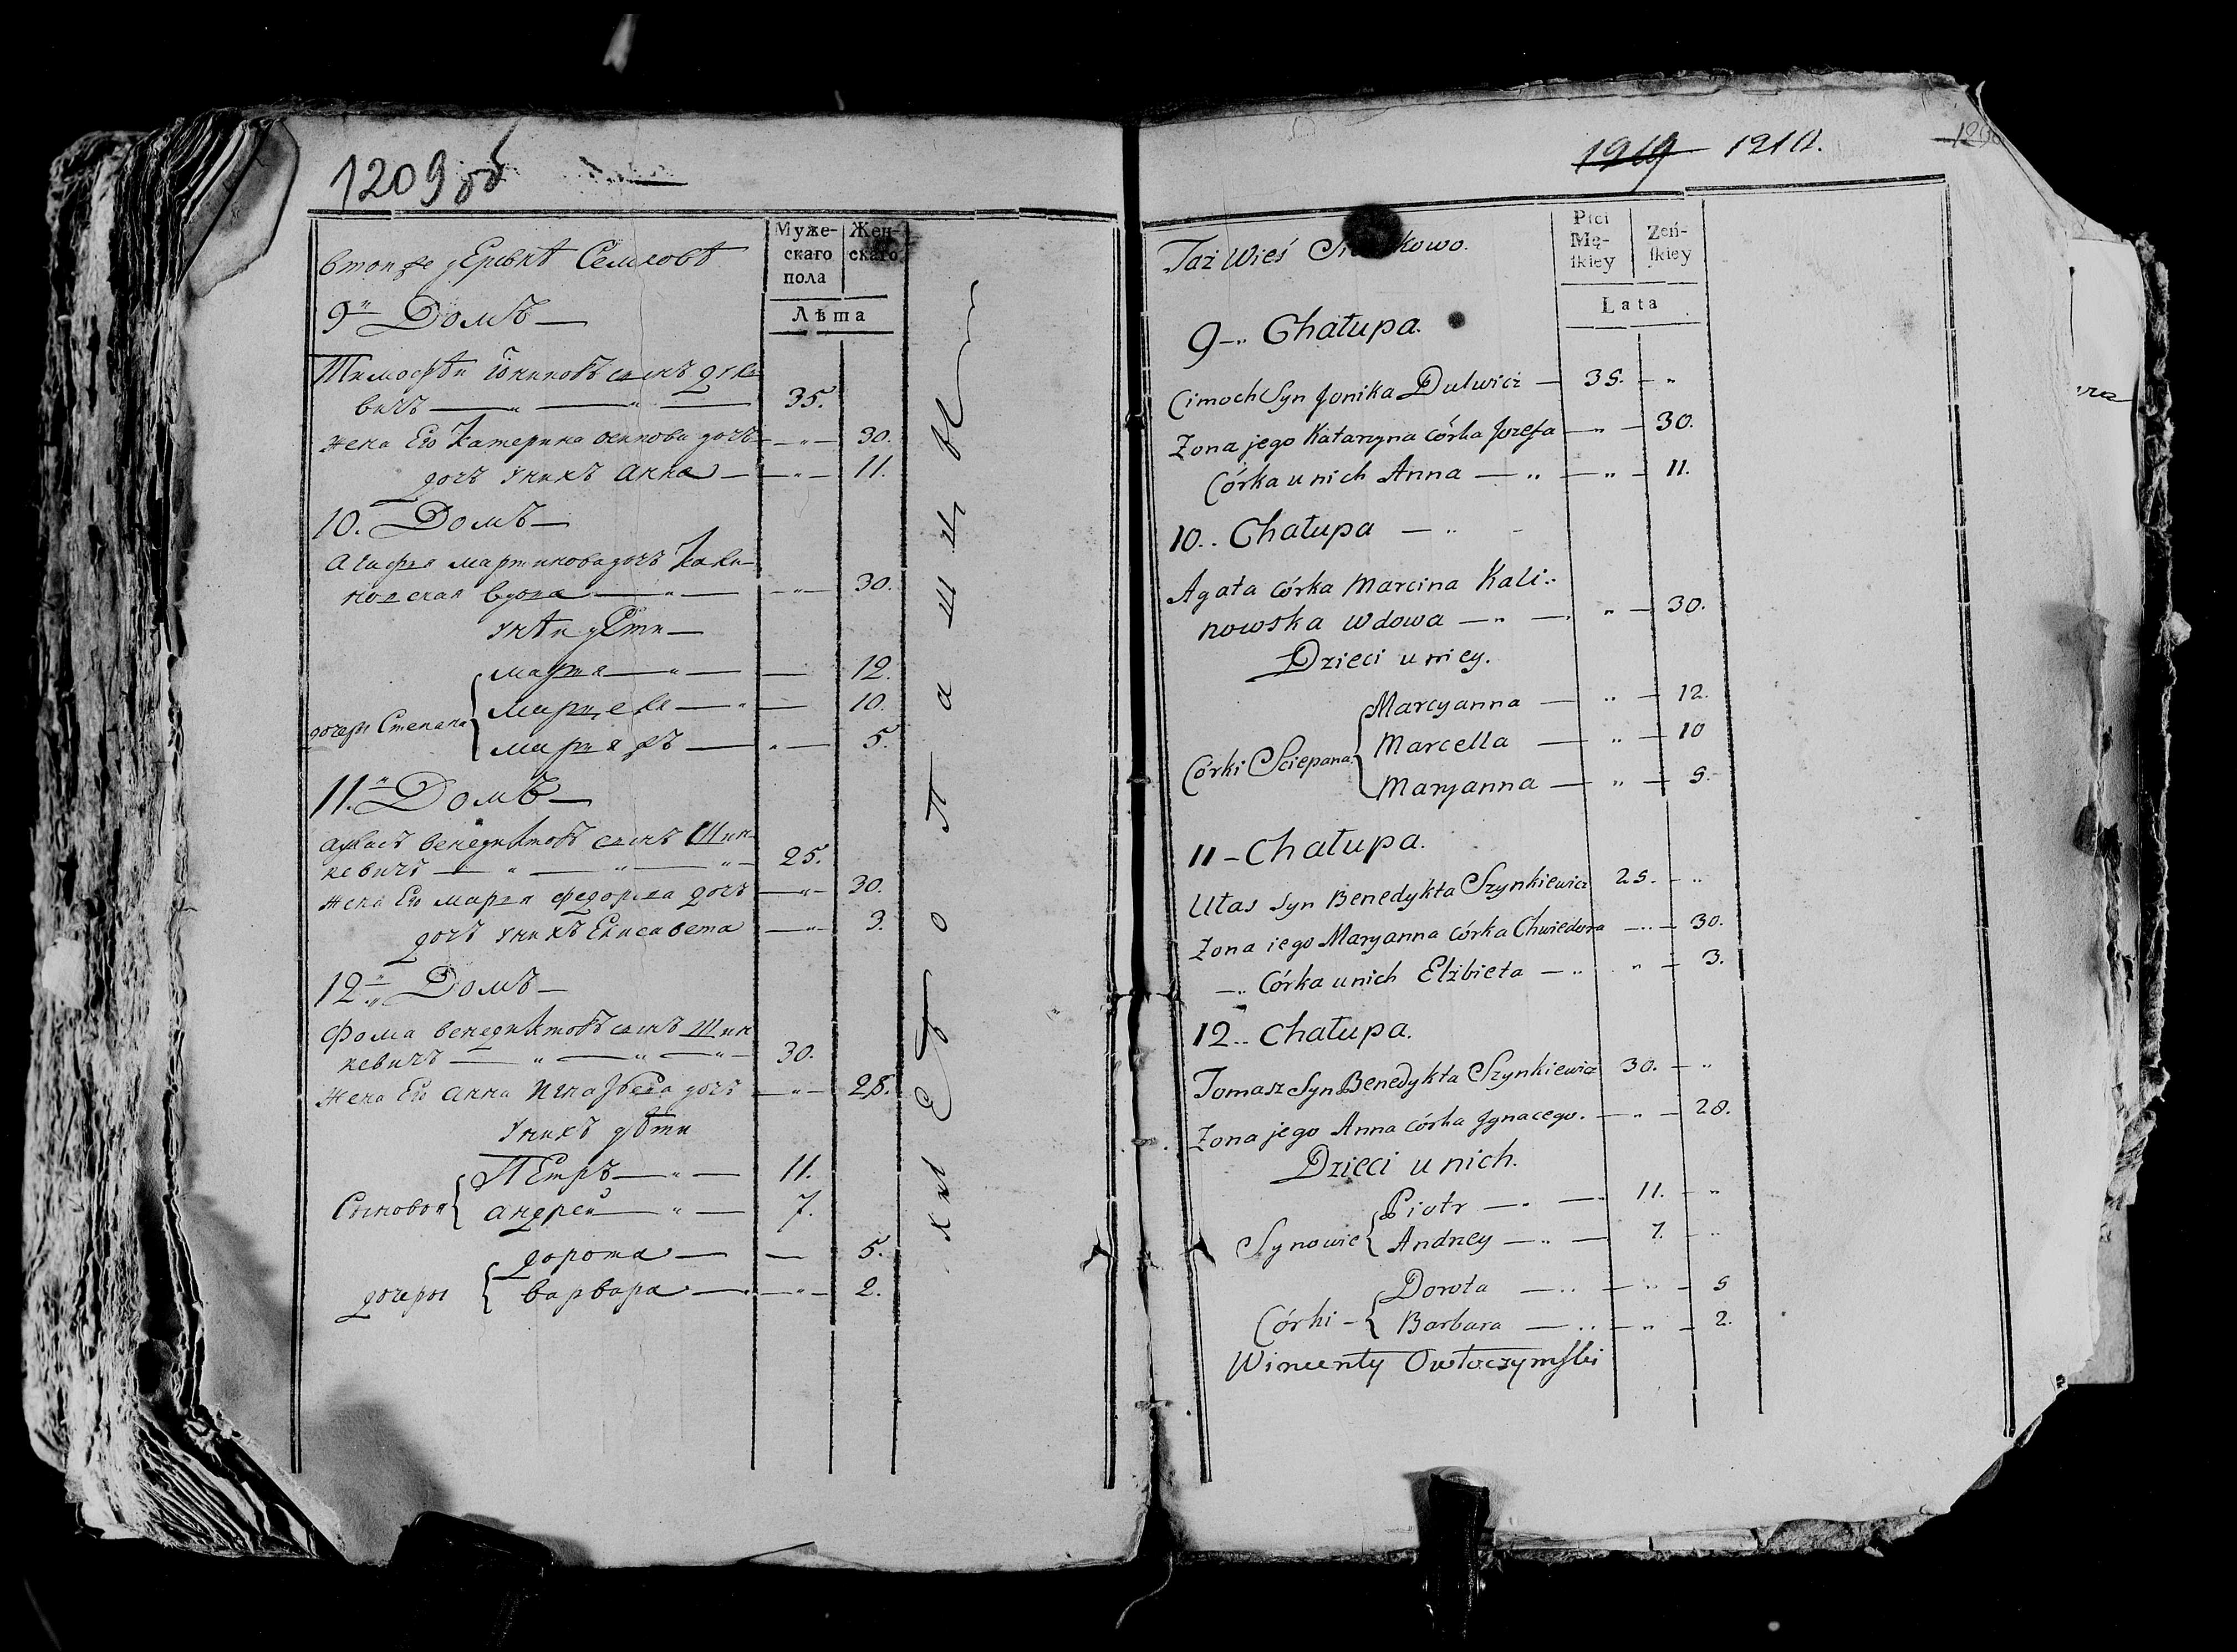 1209об
Муже-
скаго
пола
Жен-
скаго
Лѣта
втойже деревнѣ Семковѣ
9й Домъ —
Тимофѣй Іониковъ сынъ Дуле-
вичъ — " — " — 35.
жена Его Катерина осипова дочь — " — 30.
дочь унихъ Анна — — " — 11.
10. Домъ —
Агафiя мартинова дочь Кали-
новская вдова — " — — " — 30.
унѣй дѣти —
дочери Степана
марта — " — — 12.
Марцеля — " — 10.
марiянъ — " — 5.
11.й Домъ —
венедиктовъ сынъ Шин-
кевичъ — " — " — " — 25.
жена Его марiя федорова дочь — " — 30.
дочь унихъ Елисавета — " — 3.
12.й Домъ —
Фома венедиктовъ сынъ Шин
кевичъ — " — " — " — 30.
жена Его Анна дочь — " — 28.
унихъ дѣти
Сыновья
ПЕтръ — " — 11.
Андрей — " — 7.
дочери
дорота — — 5.
варвара — — " — 2.
1919 1210.
Płci
Mę-
ſkiey
Zeń-
ſkiey
Lata
Taż Wieś kowo.
9 — .. Chałupa.
Cimoch Syn Jonika Dulwicz — 35. — "
Zona jego Katarzyna córka Jozefa — " — 30.
Córka u nich Anna — .. — " — 11.
10.. Chałupa — ..
Agata córka Marcina Kali..
nowska wdowa — .. — " — 30.
Dzieci u niey.
Córki Sciepana
Marcyanna — .. — 12.
Marcella — .. — 10
Maryanna — .. — 5.
11 — Chałupa.
Ułas syn Benedykta Szynkiewicz 25. — ..
Zona iego Maryanna córka Chwiedora — .. — 30.
— .. Córka u nich Elżbieta — .. " — 3.
12.. Chałupa.
Tomasz Syn Benedykta Szynkiewicz 30. — ..
Zona jego Anna córka Jgnacego. — .. — 28.
Dzieci u nich.
Synowie
Piotr — .. — 11. — ..
Andrzey — .. — 7. — ..
Córki —
Dorota — .. — .. — 5
Barbara — .. — .. — 2.
Wincenty